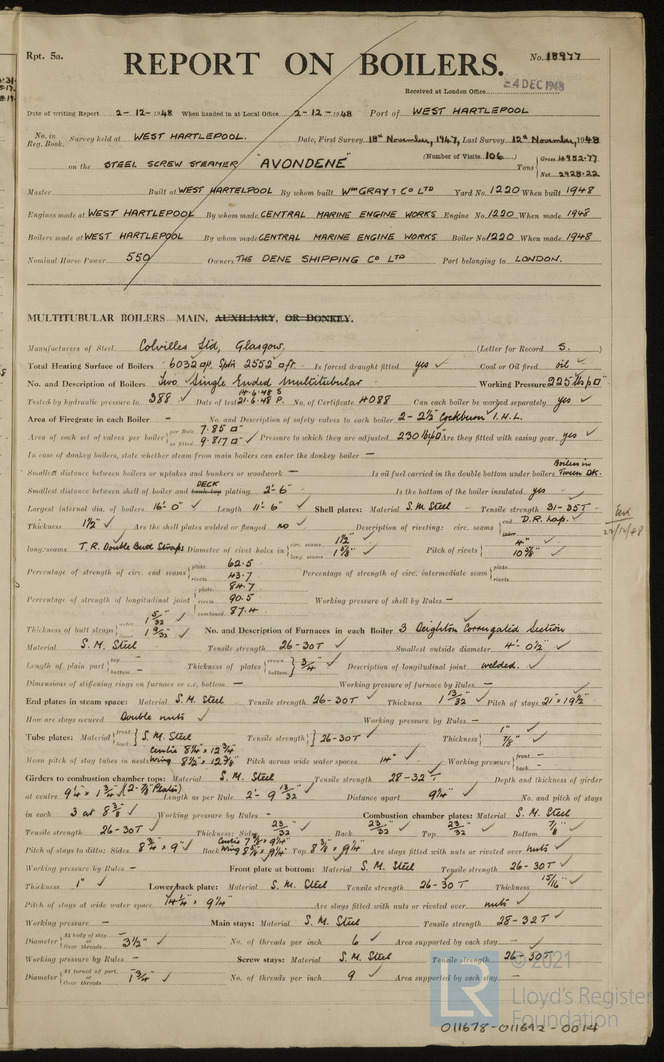 Rpt. 5a.
No. 18977
REPORT ON BOILERS.
Received at London Office
-4 DEC 1948
Date of writing Report 2-12-1948 When handed in at Local Office 2-12-1948 Port of WEST HARTLEPOOL
No. in Reg. Book. Survey held at WEST HARTLEPOOL. Date, First Survey 18th November, 1947, Last Survey 12th November, 1948
on the STEEL SCREW STEAMER "AVONDENE" (Number of Visits 106) Tons { Gross 4952.77 Net 2928.22
Master Built at WEST HARTELPOOL By whom built Wm GRAY & CO LTD Yard No. 1220 When built 1948
Engines made at WEST HARTLEPOOL By whom made CENTRAL MARINE ENGINE WORKS Engine No. 1220 When made 1948
Boilers made at WEST HARTLEPOOL By whom made CENTRAL MARINE ENGINE WORKS Boiler No. 1220 When made 1948
Nominal Horse Power 550 Owners THE DENE SHIPPING CO LTD Port belonging to LONDON.
MULTITUBULAR BOILERS MAIN, AUXILIARY, OR DONKEY.
Manufacturers of Steel Colvilles Ltd, Glasgow. (Letter for Record S.)
Total Heating Surface of Boilers 6032 □ft. Sptr 2552 □ft. Is forced draught fitted yes ✓ Coal or Oil fired oil ✓
No. and Description of Boilers Two Single Ended Multitubular Working Pressure 225 lbs p □"
Tested by hydraulic pressure to 388 ✓ Date of test 14-6-48 S 21-6-48 P. No. of Certificate 4088 Can each boiler be worked separately yes ✓
Area of Firegrate in each Boiler — No. and Description of safety valves to each boiler 2 - 2½" Cockburn I.H.L.
Area of each set of valves per boiler { per Rule 7.85 □" as fitted 9.817 □" ✓ Pressure to which they are adjusted 230 lb p □" Are they fitted with easing gear yes ✓
In case of donkey boilers, state whether steam from main boilers can enter the donkey boiler —
Smallest distance between boilers or uptakes and bunkers or woodwork — Is oil fuel carried in the double bottom under boilers Boilers in Tween DK.
Smallest distance between shell of boiler and DECK tank top plating 2'-6" Is the bottom of the boiler insulated yes ✓
Largest internal dia. of boilers 16'-0" ✓ Length 11'-6" ✓ Shell plates: Material S.M Steel ✓ Tensile strength 31-35T ✓
Thickness 1½" ✓ Are the shell plates welded or flanged no ✓ Description of riveting: circ. seams { end D.R. Lap. ✓ inter.
long. seams T.R. Double Butt Straps Diameter of rivet holes in { circ. seams 1½" ✓ long. seams Pitch of rivets { 4" ✓
Percentage of strength of circ. end seams { plate 62.5 rivets 43.7 Percentage of strength of circ. intermediate seam { plate rivets
Percentage of strength of longitudinal joint { plate 84.7 rivets 90.5 combined 87.4 Working pressure of shell by Rules —
Thickness of butt straps { outer 1 5/32 ✓ inner 1 9/32 ✓ No. and Description of Furnaces in each Boiler 3 Deighton Corrugated Section
Material S. M. Steel Tensile strength 26-30T ✓ Smallest outside diameter 4'-0½" ✓
Length of plain part { top bottom — Thickness of plates { crown bottom } ¾" ✓ Description of longitudinal joint welded. ✓
Dimensions of stiffening rings on furnace or c.c. bottom — Working pressure of furnace by Rules —
End plates in steam space: Material S. M. Steel Tensile strength 26-30T ✓ Thickness 1 13/32" ✓ Pitch of stays 21" x 19½"
How are stays secured Double nuts ✓ Working pressure by Rules —
Tube plates: Material { front back } S. M. Steel Tensile strength { } 26-30T ✓ Thickness { 1" 7/8" ✓
Mean pitch of stay tubes in nests Centre 8¼" x 12¾" Wing Pitch across wide water spaces 14" ✓ Working pressure { front — back —
Girders to combustion chamber tops: Material S. M. Steel Tensile strength 28-32T ✓ Depth and thickness of girder
at centre 9¼" x 1¾" (2-⅞ Plates) Length as per Rule 2'-9 13/32" ✓ Distance apart 9¼" ✓ No. and pitch of stays
in each 3 at Working pressure by Rules — Combustion chamber plates: Material S. M. Steel
Tensile strength 26-30T ✓ Thickness: Sides 23/32 Back 23/32 ✓ Top 23/32 ✓ Bottom 7/8" ✓
Pitch of stays to ditto: Sides 8¾" x 9" Back Centre Wing Top Are stays fitted with nuts or riveted over nuts ✓
Working pressure by Rules — Front plate at bottom: Material S. M. Steel Tensile strength 26-30T
Thickness 1" ✓ Lower back plate: Material S. M. Steel Tensile strength 26-30T ✓ Thickness 15/16" ✓
Pitch of stays at wide water space 14¼" x 9¼" Are stays fitted with nuts or riveted over nuts ✓
Working pressure — Main stays: Material S. M. Steel Tensile strength 28-32T ✓
Diameter { At body of stay or Over threads 3½" ✓ No. of threads per inch 6 ✓ Area supported by each stay —
Working pressure by Rules — Screw stays: Material S. M. Steel Tensile strength 26-30T
Diameter { At turned off part, or Over threads 1¾" ✓ No. of threads per inch 9 ✓ Area supported by each stay —
© 2021
LR
Lloyd's Register
Foundation
011678-011692-0014